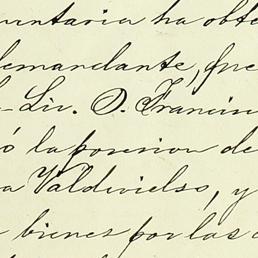 untaria ha obte
demandante, que
Lic. D. Francis
ó la posesion de
a Valdivielso, y
bienes por las